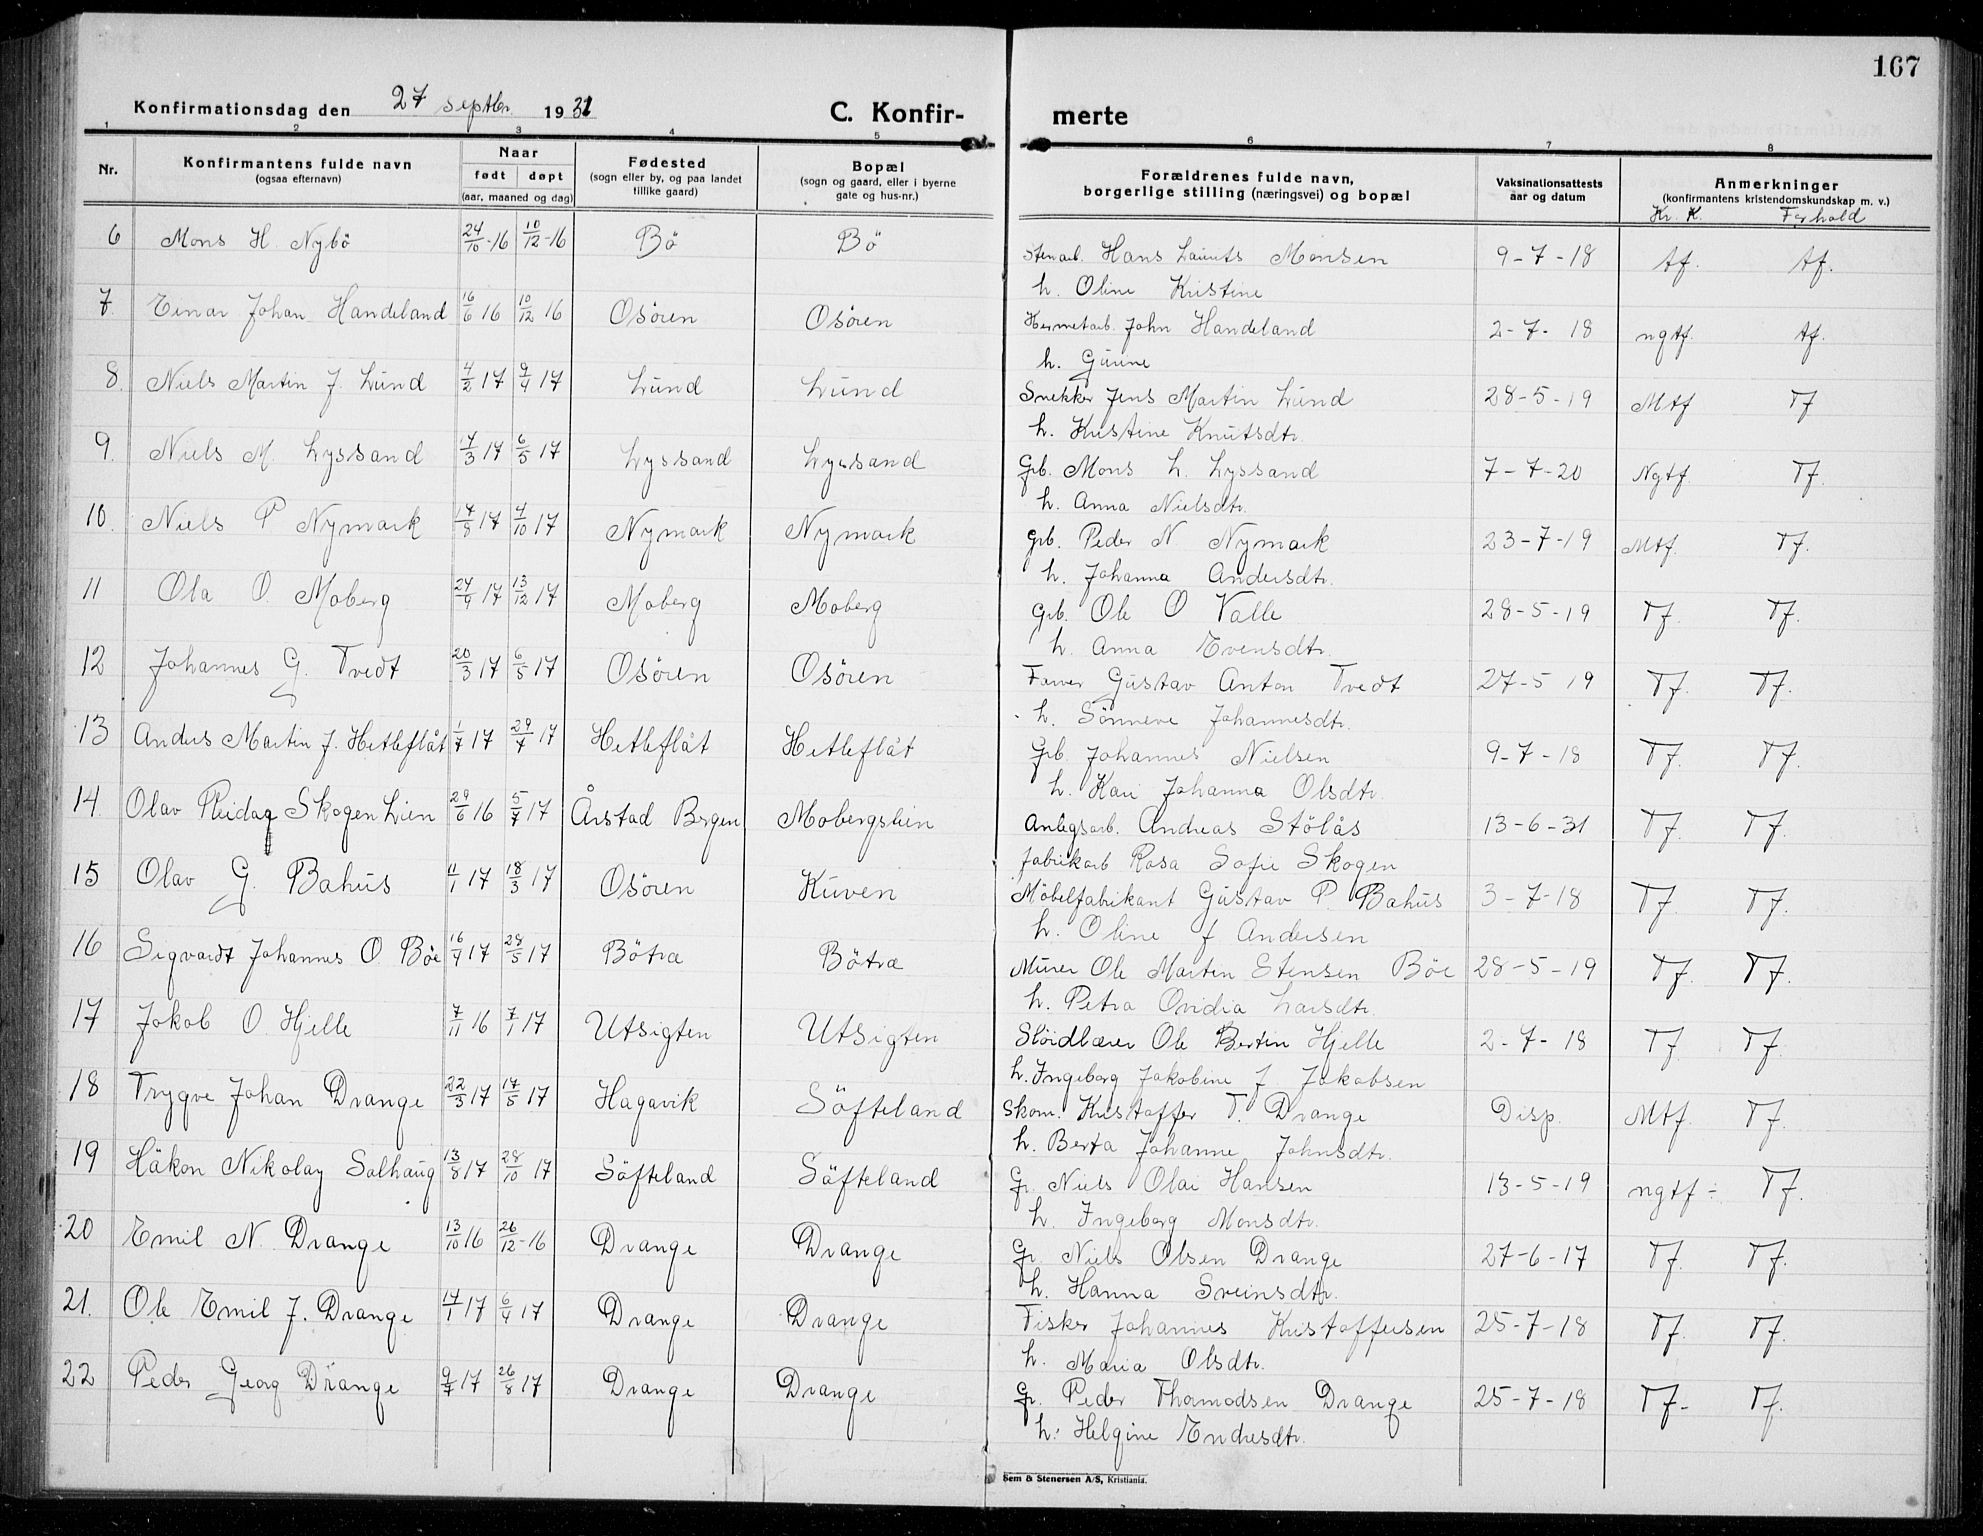 167
Konfirmationsdag den 27 septbr. 1931 C. Konfir- merte
1 2 3 4 5 6 7 8
Nr. Konfirmantens fulde navn (ogsaa efternavn) Naar født døpt (aar, maaned og dag) Fødested (sogn eller by, og paa landet tillike gaard) Bopæl (sogn og gaard, eller i byerne gate og hus-nr.) Forældrenes fulde navn, borgerlige stilling (næringsvei) og bopæl Vaksinationsattests aar og datum Anmerkninger (konfirmantens kristendomskundskap m. v.)
Kr. K. Forhold
6 Mons H. Nybö 24/10-16 10/12-16 Bö Bö Stenarb. Hans Laurits Monsen 9-7-18 Tf. Tf.
h. Oline Kristine
7. Einar Johan Handeland 16/6 16 10/12 16 Osören Osören Hermetarb. John Handeland 2-7-18 ngtf. Tf.
h. Gurine
8. Niels Martin J. Lund 4/2 17 9/4 17 Lund Lund Snekker Jens Martin Lund 28-5-19 Mtf Tf
h. Kristine Knutsdtr.
9. Niels M. Lyssand 14/3 17 6/5 17 Lyssand Lyssand Grb. Mons L. Lyssand 7-7-20 Ngtf. Tf.
h. Anna Nielsdtr.
10. Niels P Nymark 14/8 17 4/10 17 Nymark Nymark Grb. Peder N. Nymark 23-7-19 Mtf. Tf.
h. Johanna Andersdtr.
11 Ola O. Moberg 24/9 17 13/12 17 Moberg Moberg Grb. Ole O Valle 28-5-19 Tf. Tf.
h. Anna Evensdtr.
12 Johannes G. Tvedt 20/3 17 6/5 17 Osören Osören Farver Gustav Anton Tvedt 27-5 19 Tf. Tf.
h. Sönneve Johannesdtr.
13 Anders Martin J. Hetleflåt 1/7 17 29/7 17 Hetleflåt Hetleflåt Grb. Johannes Nielsen 9-7-18 Tf. Tf.
h. Kari Johanna Olsdtr.
14. Olav Reidar Skogen Lien 29/6 16 5/7 17 Årstad Bergen Mobergslien Anlegsarb. Andreas Stölås 13-6-31 Tf. Tf.
fabrikarb Rosa Sofie Skogen
15 Olav G. Bahus 11/1 17 18/3 17 Osören Kuven Möbelfabrikant Gustav P. Bahus 3-7-18 Tf. Tf.
h. Oline J Andersen
16 Sigvardt Johannes O. Böe 16/4 17 28/5 17 Bötræ Bötræ Murer Ole Martin Stensen Böe 28-5-19 Tf. Tf.
h. Petra Ovidia Larsdtr.
17 Jakob O. Hjelle 7/11 16 7/1 17 Utsigten Utsigten Slöidlærer Ole Bertin Hjelle 2-7-18 Tf Tf.
h. Ingeborg Jakobine J Jakobsen
18 Trygve Johan Drange 22/3 17 17/5 17 Hagavik Söfteland Skom. Kristoffer T. Drange Disp. Mtf. Tf.
h. Berta Johanne Johnsdtr.
19 Håkon Nikolay Solhaug 13/8 17 28/10 17 Söfteland Söfteland Gr. Niels Olai Hansen 13-5-19 ngtf - Tf.
h. Ingeborg Monsdtr.
20 Emil N. Drange 13/10 16 26/12-16 Drange Drange Gr. Niels Olsen Drange 27-6-17 Tf. Tf.
h. Hanna Sveinsdtr.
21. Ole Emil J. Drange 14/1 17 6/4 17 Drange Drange Fisker Johannes Kristoffersen 25-7-18 Tf. Tf.
h. Maria Olsdtr.
22 Peder Georg Drange 9/7 17 26/8 17 Drange Drange Gr. Peder Thormodsen Drange 25-7-18 Tf- Tf.
h. Helgine Endresdtr.
Sem & Stenersen A/S, Kristiania.